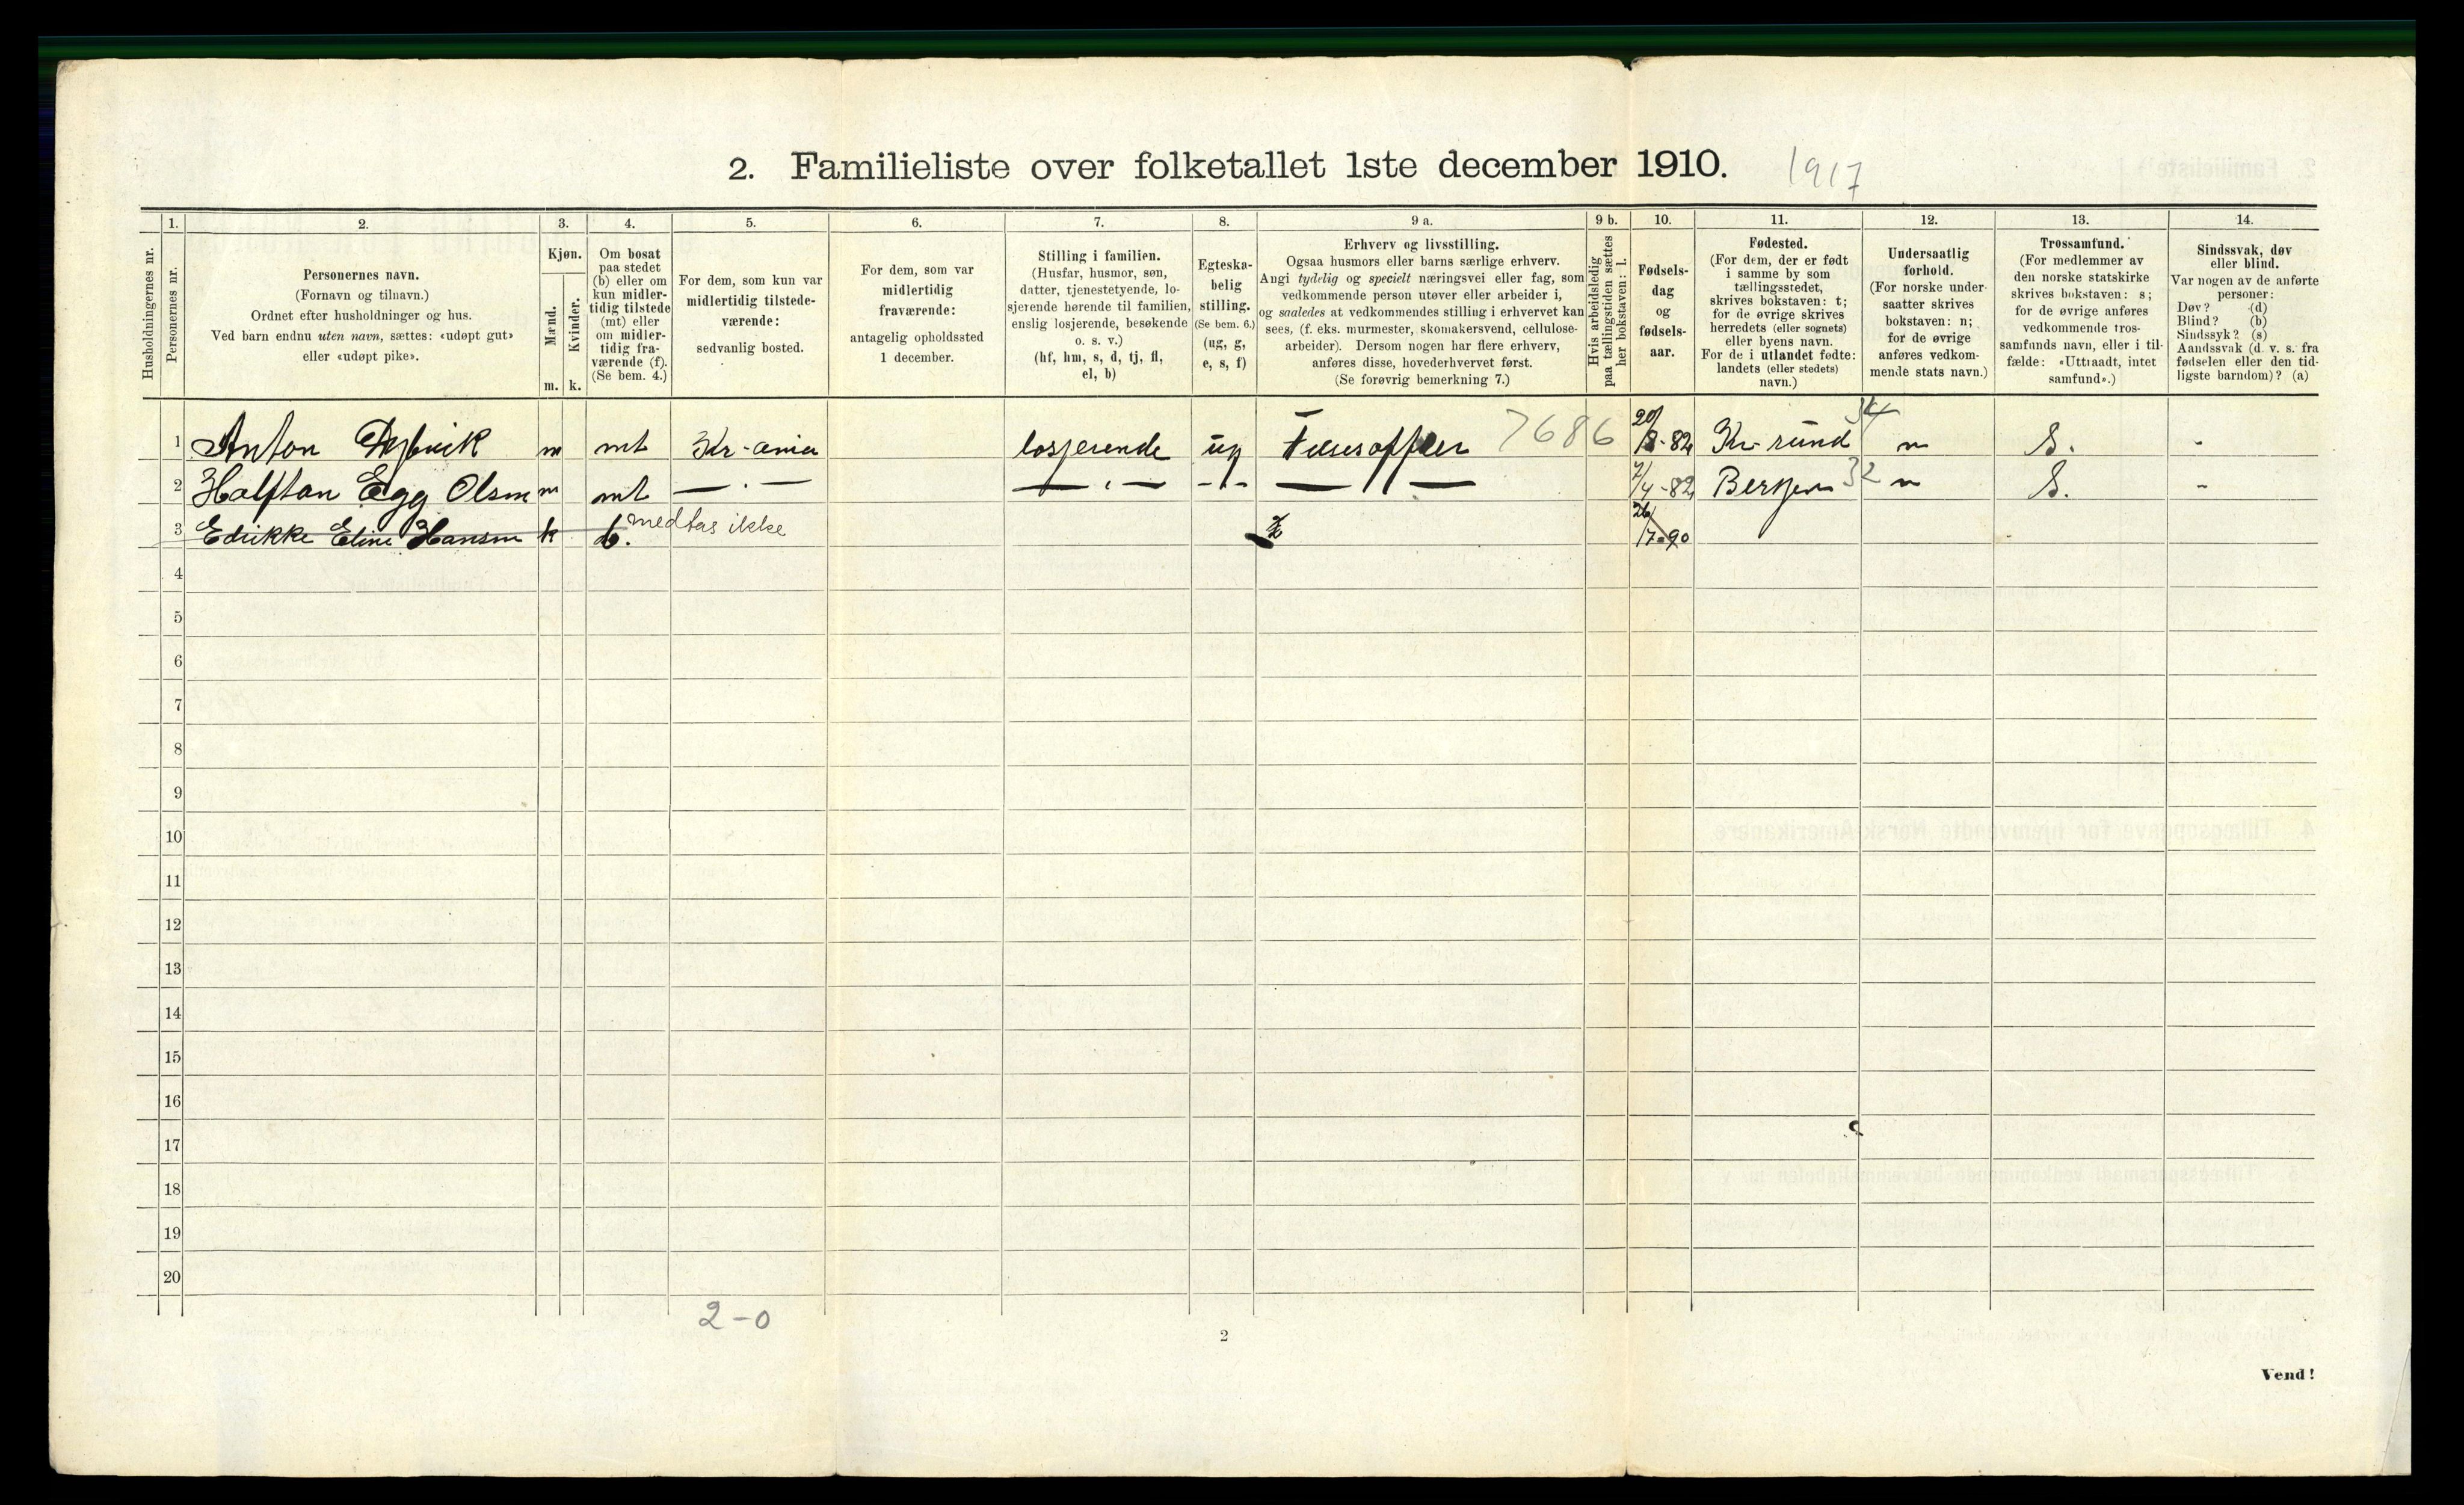 2. Familieliste over folketallet 1ste december 1910. 1917
1. 2. 3. 4. 5. 6. 7. 8. 9 a. 9 b. 10. 11. 12. 13. 14.
Husholdningernes nr.
Personernes nr.
Personernes navn.
(Fornavn og tilnavn.)
Ordnet efter husholdninger og hus.
Ved barn endnu uten navn, sættes: «udøpt gut»
eller «udøpt pike».
Kjøn.
Mænd.
Kvinder.
m. k.
Om bosat
paa stedet
(b) eller om
kun midler-
tidig tilstede
(mt) eller
om midler-
tidig fra-
værende (f).
(Se bem. 4.)
For dem, som kun var
midlertidig tilstede-
værende:
sedvanlig bosted.
For dem, som var
midlertidig
fraværende:
antagelig opholdssted
1 december.
Stilling i familien.
(Husfar, husmor, søn,
datter, tjenestetyende, lo-
sjerende hørende til familien,
enslig losjerende, besøkende
o. s. v.)
(hf, hm, s, d, tj, fl,
el, b)
Egteska-
belig
stilling.
(Se bem. 6.)
(ug, g,
e, s, f)
Erhverv og livsstilling.
Ogsaa husmors eller barns særlige erhverv.
Angi tydelig og specielt næringsvei eller fag, som
vedkommende person utøver eller arbeider i,
og saaledes at vedkommendes stilling i erhvervet kan
sees, (f. eks. murmester, skomakersvend, cellulose-
arbeider). Dersom nogen har flere erhverv,
anføres disse, hovederhvervet først.
(Se forøvrig bemerkning 7.)
Hvis arbeidsledig
paa tællingstiden sættes
her bokstaven: l.
Fødsels-
dag
og
fødsels-
aar.
Fødested.
(For dem, der er født
i samme by som
tællingsstedet,
skrives bokstaven: t;
for de øvrige skrives
herredets (eller sognets)
eller byens navn.
For de i utlandet fødte:
landets (eller stedets)
navn.)
Undersaatlig
forhold.
(For norske under-
saatter skrives
bokstaven: n;
for de øvrige
anføres vedkom-
mende stats navn.)
Trossamfund.
(For medlemmer av
den norske statskirke
skrives bokstaven: s;
for de øvrige anføres
vedkommende tros-
samfunds navn, eller i til-
fælde: «Uttraadt, intet
samfund».)
Sindssvak, døv
eller blind.
Var nogen av de anførte
personer:
Døv? (d)
Blind? (b)
Sindssyk? (s)
Aandssvak (d. v. s. fra
fødselen eller den tid-
ligste barndom)? (a)
1 Anton m mt Kr-ania losjerende ug 7686 20/8-82 Kr-sund 34 n S. -
2 Halfdan Egg Olsen m mt — . — — . — - . - — " — 7/4-82 Bergen 32 n S. -
3 Edrikke Eline Hansen k b. medtas ikke 26/7-90
4
5
6
7
8
9
10
11
12
13
14
15
16
17
18
19
20
2-0
2
Vend!